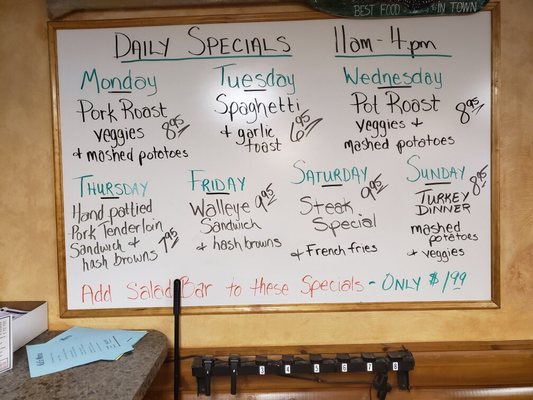 BEST FOOD IN TOWN
DAILY SPECIALS 11am - 4pm
Monday
Pork Roast
veggies 8.95
+ mashed potatoes
Tuesday
Spaghetti
+ garlic toast 6.95
Wednesday
Pot Roast 8.95
veggies +
mashed potatoes
THURSDAY
Hand pattied
Pork Tenderloin
Sandwich + 7.95
hash browns
FRIDAY
Walleye 9.95
Sandwich
+ hash browns
SATURDAY
Steak 9.95
Special
+ French fries
SUNDAY
TURKEY 8.95
DINNER
mashed
potatoes
+ veggies
Add Salad Bar to these Specials - ONLY $1.99
3 4 5 6 7 8